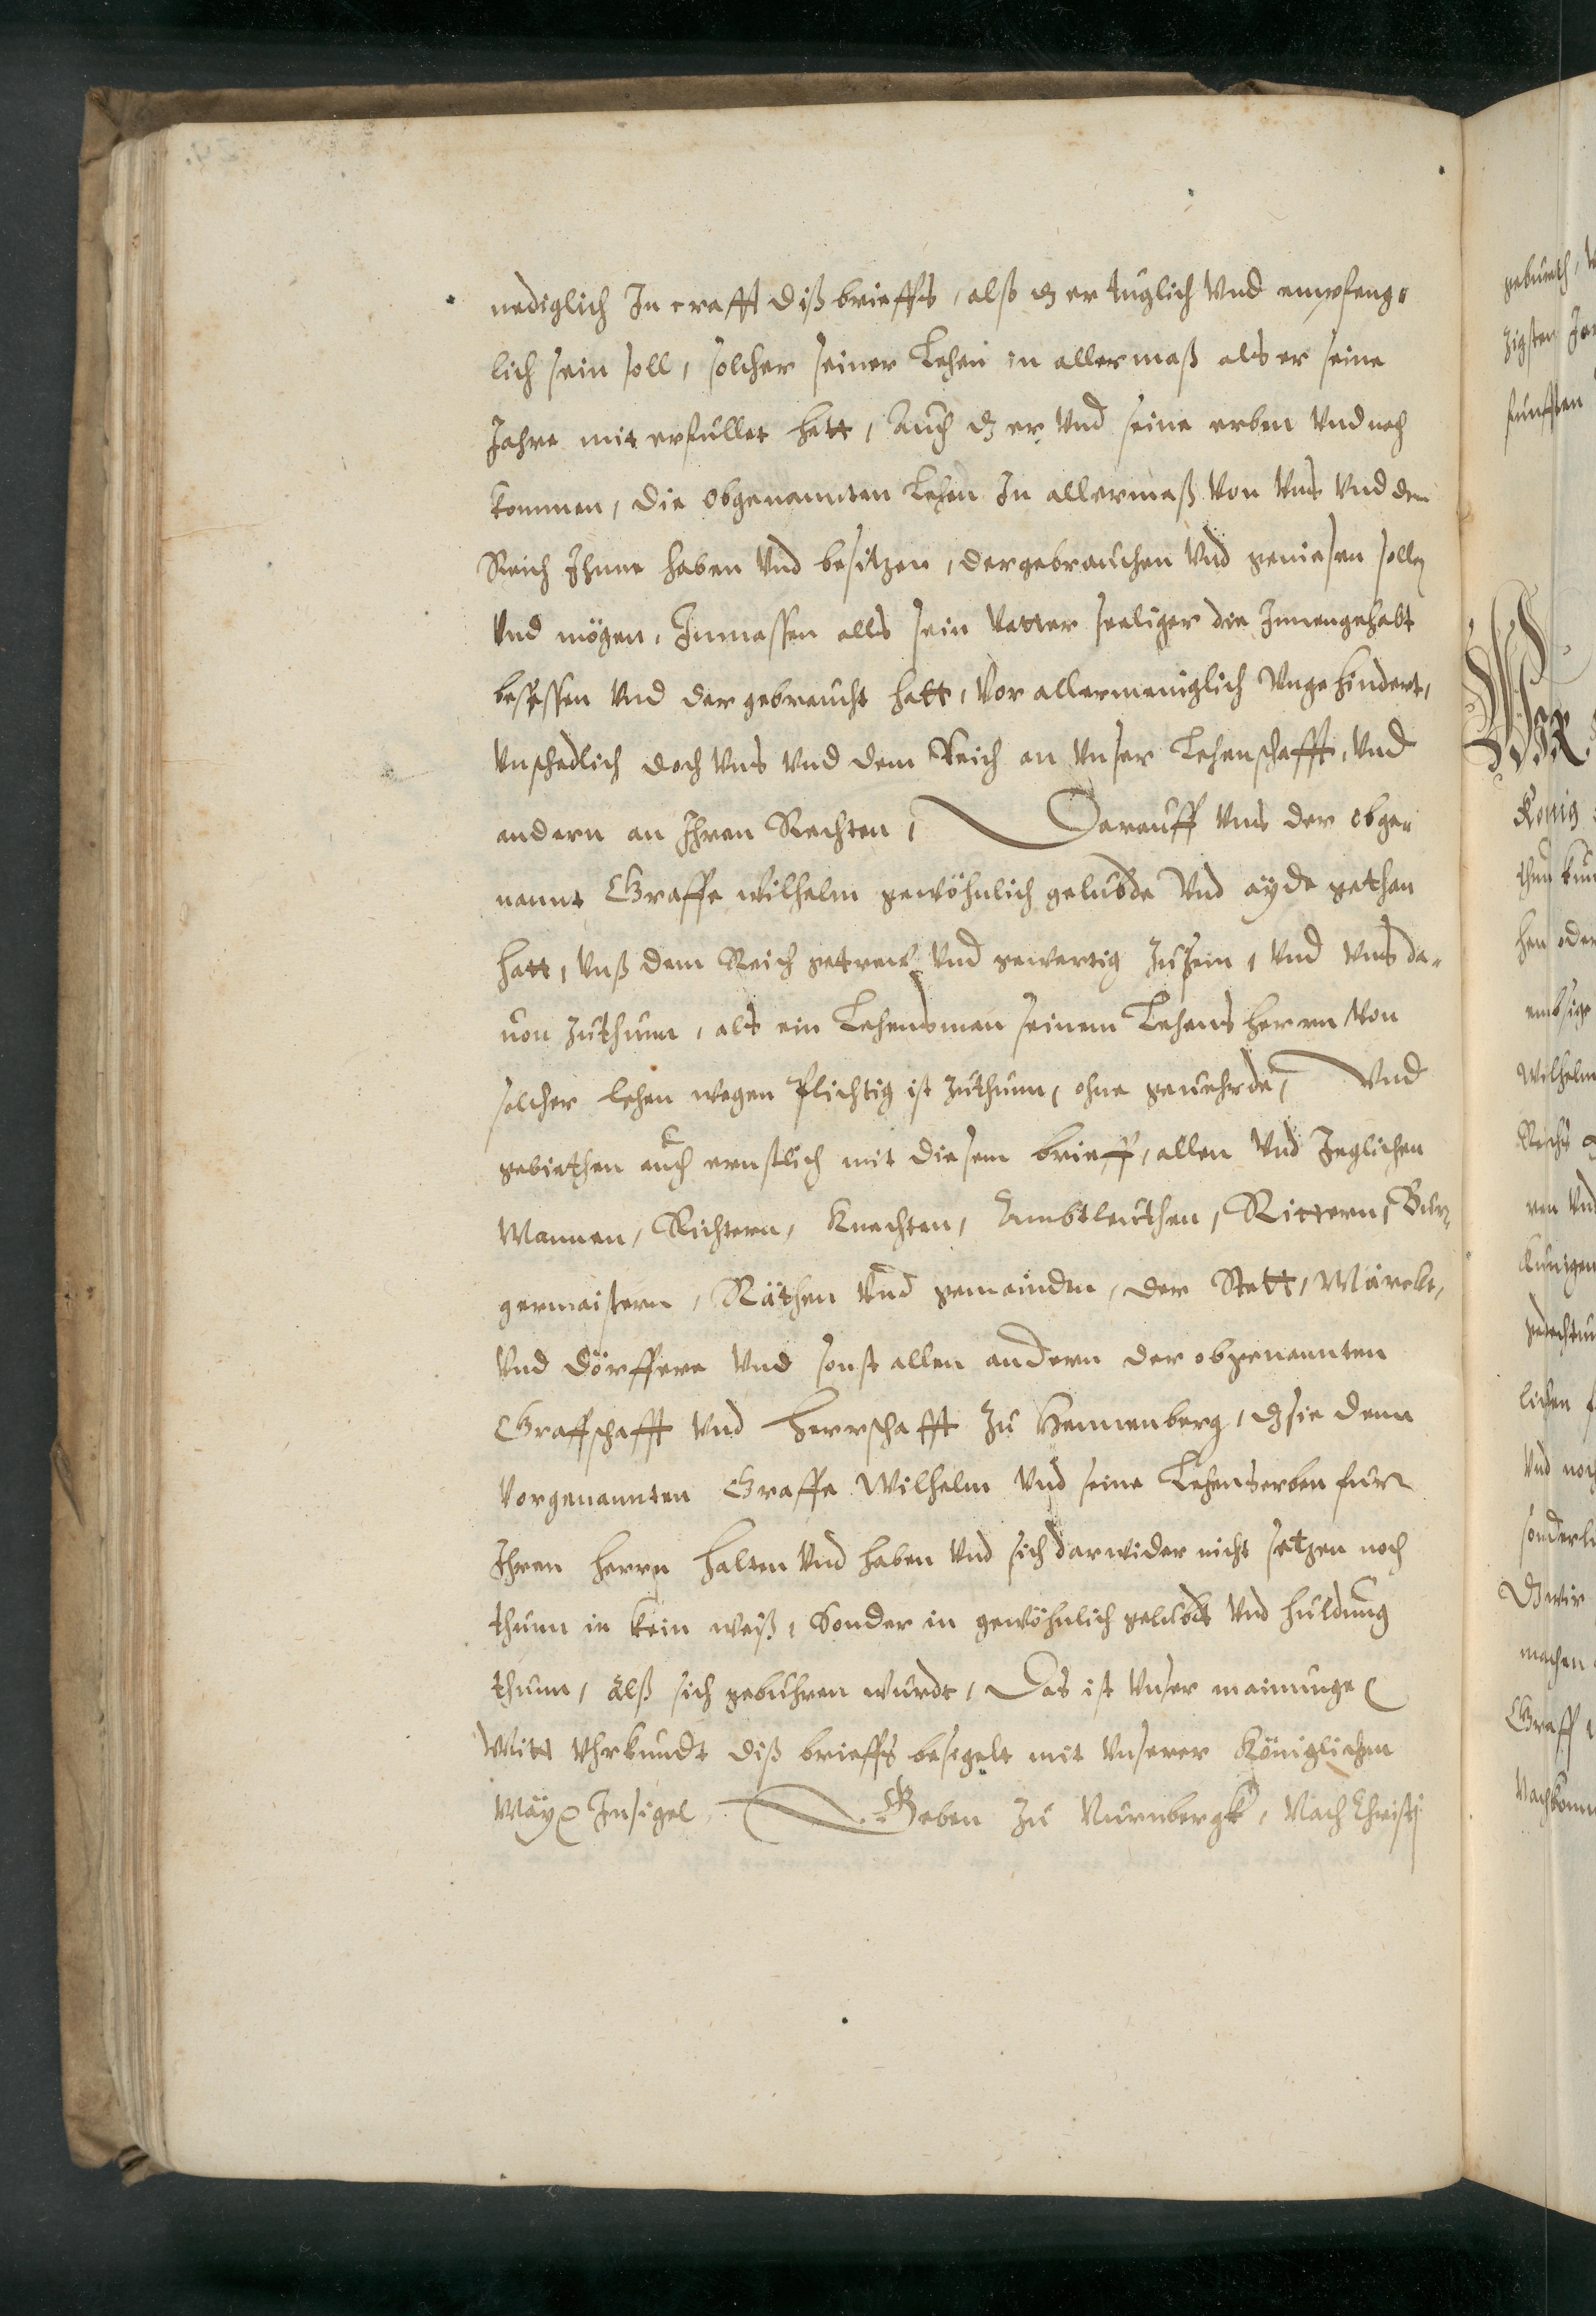 nediglich In crafft diß brieffs, alß dz er tuglich vnd empfeng-
lich sein soll, solcher seiner Lehen in allermaß als er seine
Jahre mit erfullet hett, Auch dz er vnd seine erben vnd nach
kommen, die obgenannten Lehen In allermaß von vns vnd dem
Reich Ihnne haben vnd besitzen, der gebrauchen vnd geniesen sollen
vnd mögen, Inmassen alls sein Vatter seeliger die Innengehabt
besessen vnd der gebraucht hatt, vor allermeniglich vngehindert,
vnschedlich doch vns vnd dem Reich an vnser Lehenschafft, vnd
andern an Ihren Rechten, Darauff vns der obge-
nannt Graffe Wilhelm gewöhnlich gelubde vnd ayde gethan
hatt, vnß dem Reich getrew vnd gewertig zusein, vnd vns da-
uon zuthunn, als ein Lehensman seinem Lehens herrn von
solcher lehen wegen Plichtig ist zuthunn, ohne geuehrde, Vnd
gebiethen auch ernstlich mit diesem brieff, allen vnd Jeglichen
Mannen, Richtern, Knechten, Ambtleuthen, Rittern, Bur-
germaistern, Räthen vnd gemainden, der Stett, Märckt,
vnd dörffere vnd sonst allen andern der obgenannten
Graffschafft vnd Herrschafft zu Hennenberg, dz sie denn
vorgenannten Graffe Wilhelm vnd seine Lehenserben fur
Ihren herrn halten vnd haben vnd sich darwider nicht setzen noch
thunn in kein weiß, Sonder in gewöhnlich gelubds vnd huldung
thunn, alß sich gebuhren wurdt, Das ist vnser mainunge
Mitt vhrkundt diß brieffs besigelt mit vnserer Königlichen
May Insigel Geben zu Nurnbergk, Nach Christj